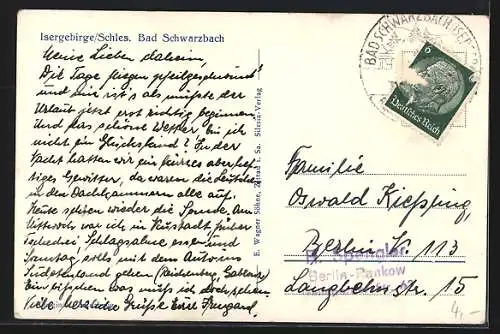 Isergebirge/Schles. Bad Schwarzbach
Meine Lieben daheim,
Die Tage fliegen pfeilgeschwind!
und mir ist's als müsste der
Urlaub jetzt erst richtig beginnen.
Und das schöne Wetter, bin ich
nicht ein Glückskind? In der
Nacht hatten wir ein kurzes aber hef-
tiges Gewitter, da waren die Leutchen
in den Dachkammern alle auf.
Heute spüren wieder die Sonne. Am
Mittwoch war ich in Neustadt früher
Tschechei, Schlagsahne essen und
Samstag solls mit dem Auto ins
Sudetenland gehen (Reichenberg, Gablonz)
Ein bisschen was muß ich doch sehen
Viele herzliche Grüße Eure Irmgard.
E. Wagner Söhne, Zittau i. Sa. Silesia-Verlag
BAD SCHWARZBACH
6
Deutsches Reich
Familie
Oswald Kießling,
Berlin N. 113
Langhehnstr. 15
Berlin-Pankow
4,-